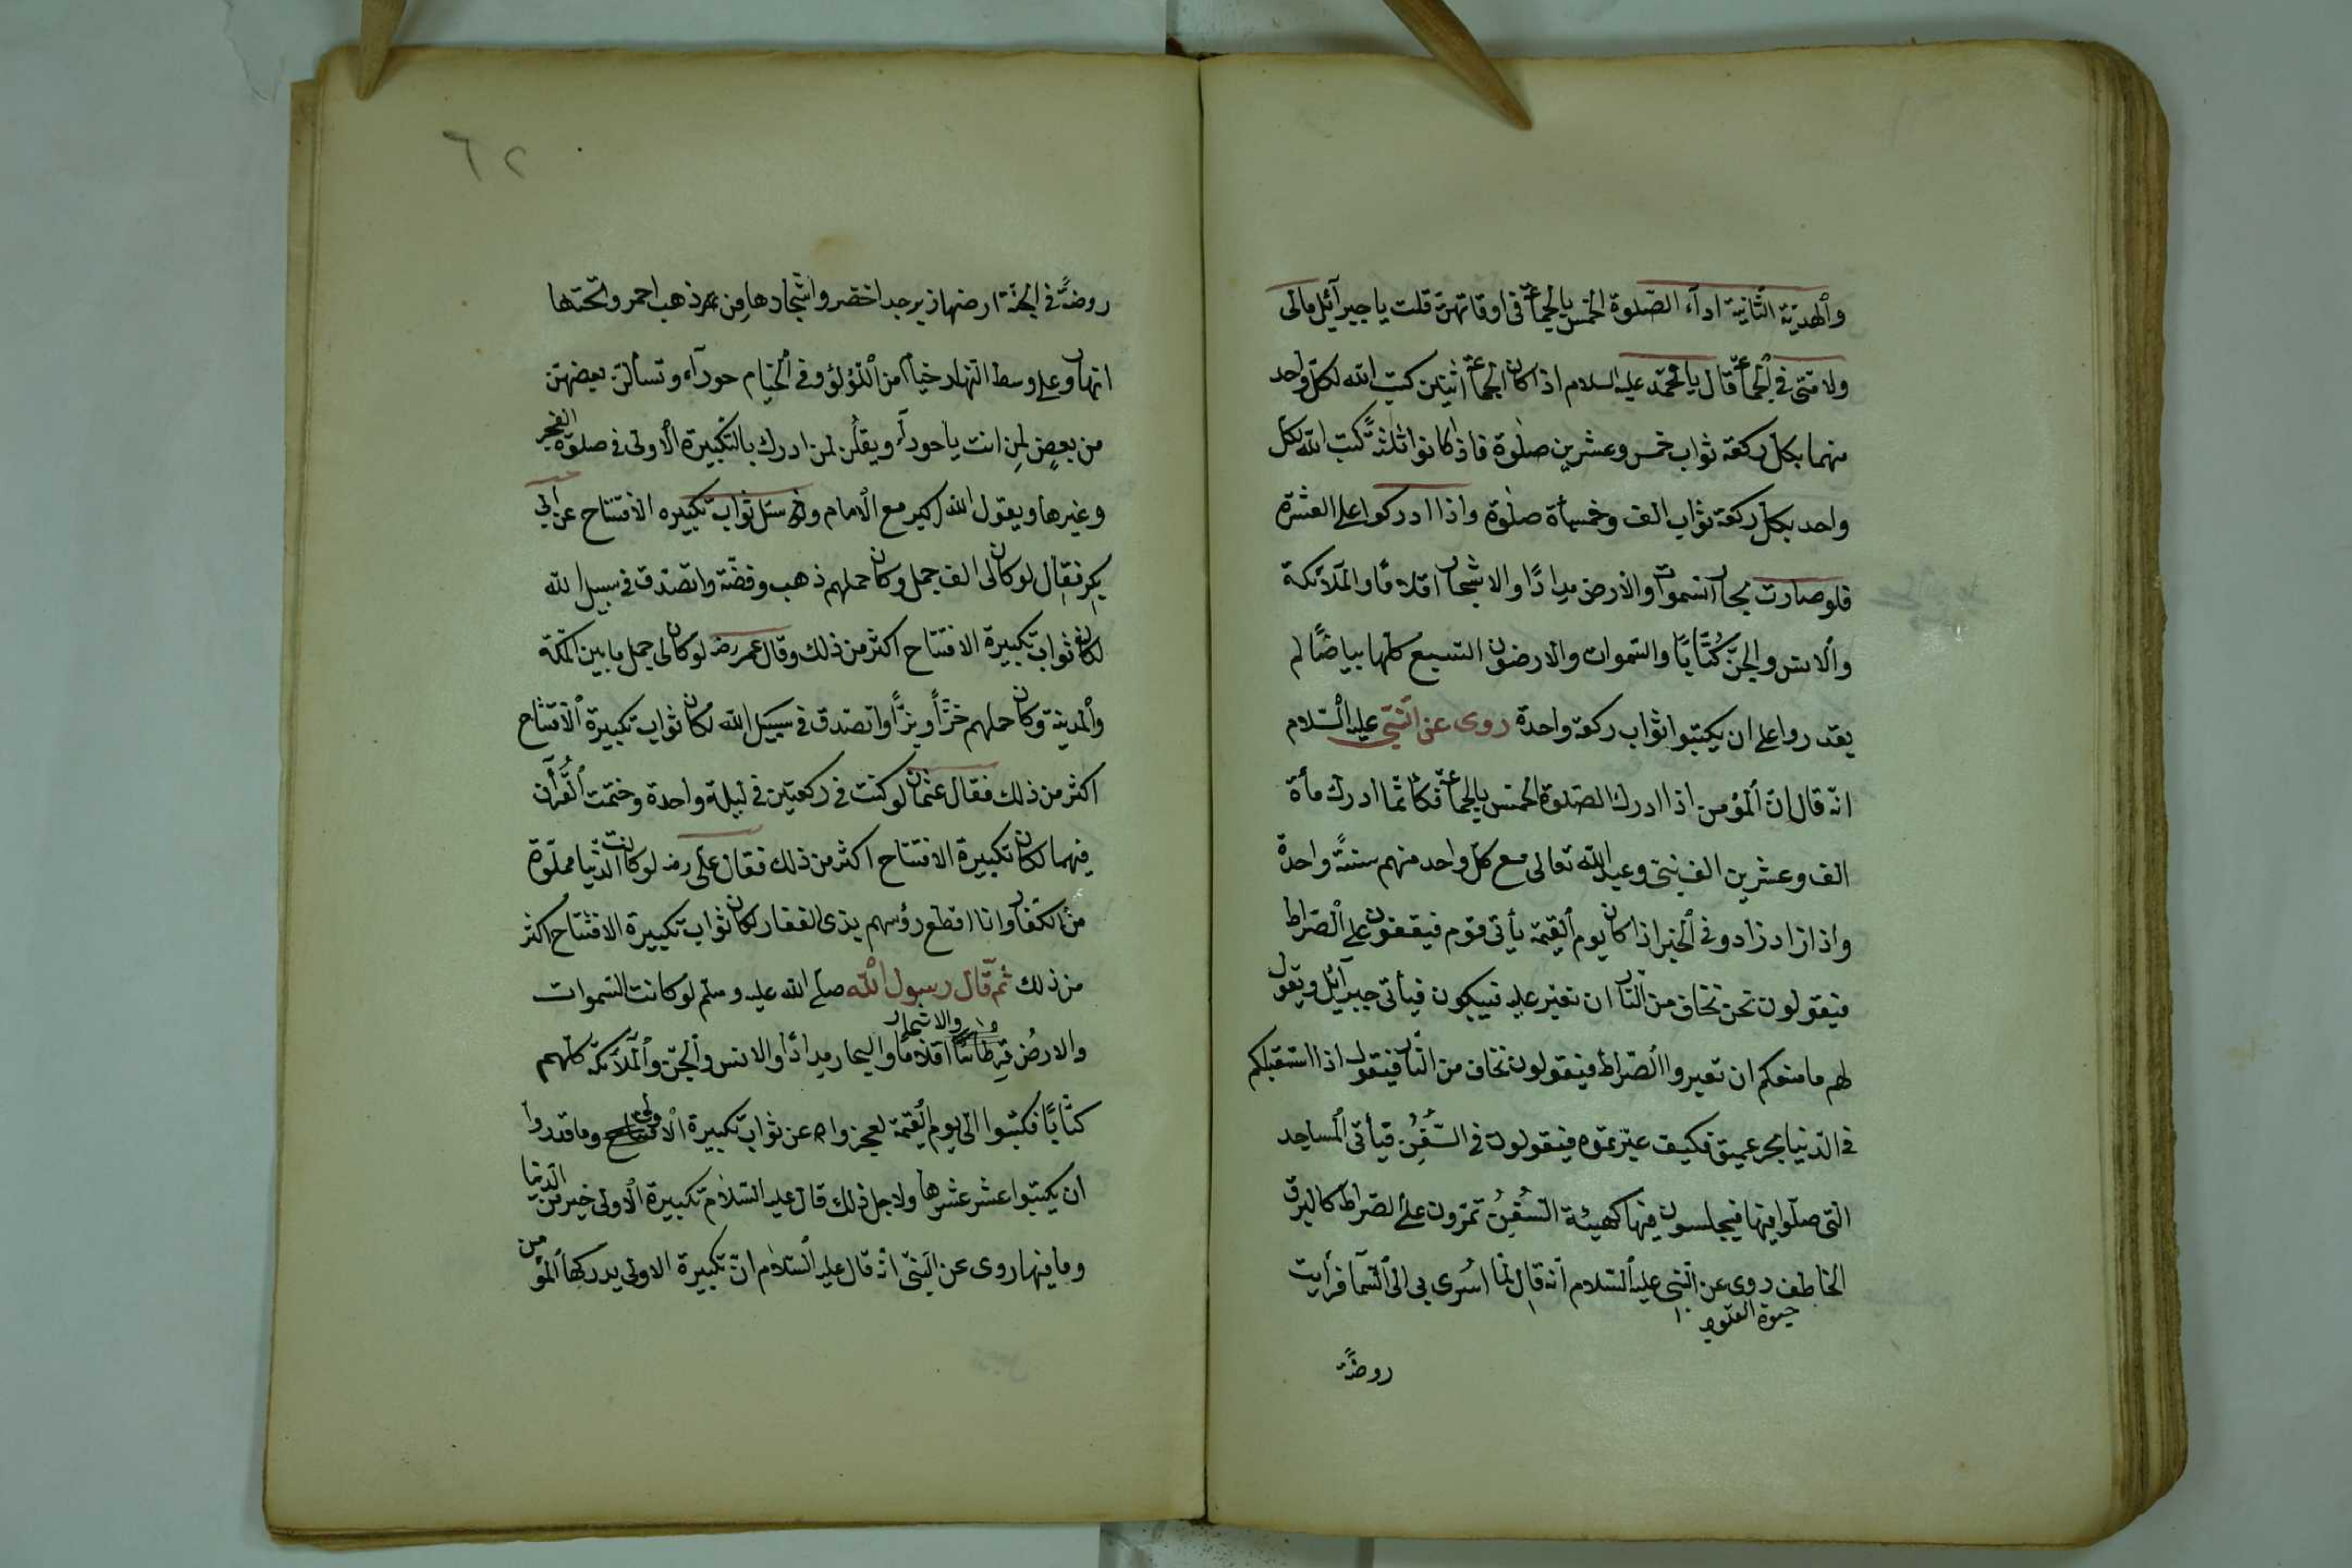 والهدية الثانية اداء الصلوة الخمس بالجماعة فى اوقاتهن قلت يا جبرآئيل مالى
ولامتى فى الجماعة قال يا محمد عليه السلام اذا كان الجماعة اثنين كتب الله لكل واحد
منهما بكل ركعة ثواب خمس وعشرين صلوة فاذا كانوا ثلثة كتب الله لكل
واحد بكل ركعة ثواب الف وخمسمأة صلوة واذا ادركوا على العشرة
فلو صارت بحار السموات والارض مدادًا والاشجار اقلامًا والملآئكة
والانس والجن كُتّابًا والسموات والارضون السبع كلها بياضًا لم
يقدروا على ان يكتبوا ثواب ركعة واحدة روى عن النبى عليه السلام
انه قال ان المؤمن اذا ادرك الصلوة الخمس بالجماعة فكانما ادرك مأة
الف وعشرين الف نبى وعبد الله تعالى مع كل واحد منهم سنةً واحدة
واذا زاد زادو فى الخبر اذا كان يوم القيمة يأتى قوم فيقفون على الصراط
فيقولون نحن نخاف من النار ان نعبر عليه فيبكون فيأتى جبرآئيل ويقول
لهم ما منعكم ان تعبروا الصراط فيقولون نخاف من النار فيقول اذا استقبلكم
فى الدنيا بحر عميق فكيف عبرتموه فيقولون فى السُّفُنِ فيأتى المساجد
التى صلوا فيها فيجلسون فيها كهيئة السُّفُنِ تمرون على الصراط كالبرق
الخاطف روى عن النبى عليه السلام انه قال لما اُسرى بى الى السمآ فرأيت
حيوة القلوب
روضةً
٦٢
روضةً فى الجنة ارضها زبرجد اخضر واشجارها من ذهب احمر وتحتها
انهار وعلى وسط النهار خيامًا من اللؤلؤ وفى الخيام حورآء وتسألن بعضهن
من بعض لمن انت يا حورآء ويقلن لمن ادرك بالتكبيرة الاولى فى صلوة الفجر
وغيرها ويقول الله اكبر مع الامام سئل ثواب تكبيره الافتتاح عن ابى
بكر فقال لو كان لى الف جمل وكان حملهم ذهب وفضة واتصدق فى سبيل الله
لكان ثواب تكبيرة الافتتاح اكثر من ذلك وقال عمر رضه لو كان لى جمل ما بين المكة
والمدينة وكان حملهم خزًّا وبزًّا واتصدق فى سبيل الله لكان ثواب تكبيرة الافتتاح
اكثر من ذلك فقال عثمان لو كنت فى ركعتين فى ليلة واحدة وختمت القرآن
فيهما لكان تكبيرة الافتتاح اكثر من ذلك فقال على رضه لو كانت الدنيا مملوة
من الكفار وانا اقطع رؤسهم بذى الفقار لكان ثواب تكبيرة الافتتاح اكثر
من ذلك ثم قال رسول الله صلى الله عليه وسلم لو كانت السموات
والارض قرطاسًا والاشجار اقلامًا والبحار مدادًا والانس والجن والملآئكة كلهم
كتّابًا فكتبوا الى يوم القيمة لعجزوا عن ثواب تكبيرة الاولى وما قدروا
ان يكتبوا عشر عشرها ولاجل ذلك قال عليه السلام تكبيرة الاولى خير من الدنيا
وما فيها روى عن النبى انه قال عليه السلام ان تكبيرة الاولى يدركها المؤمن